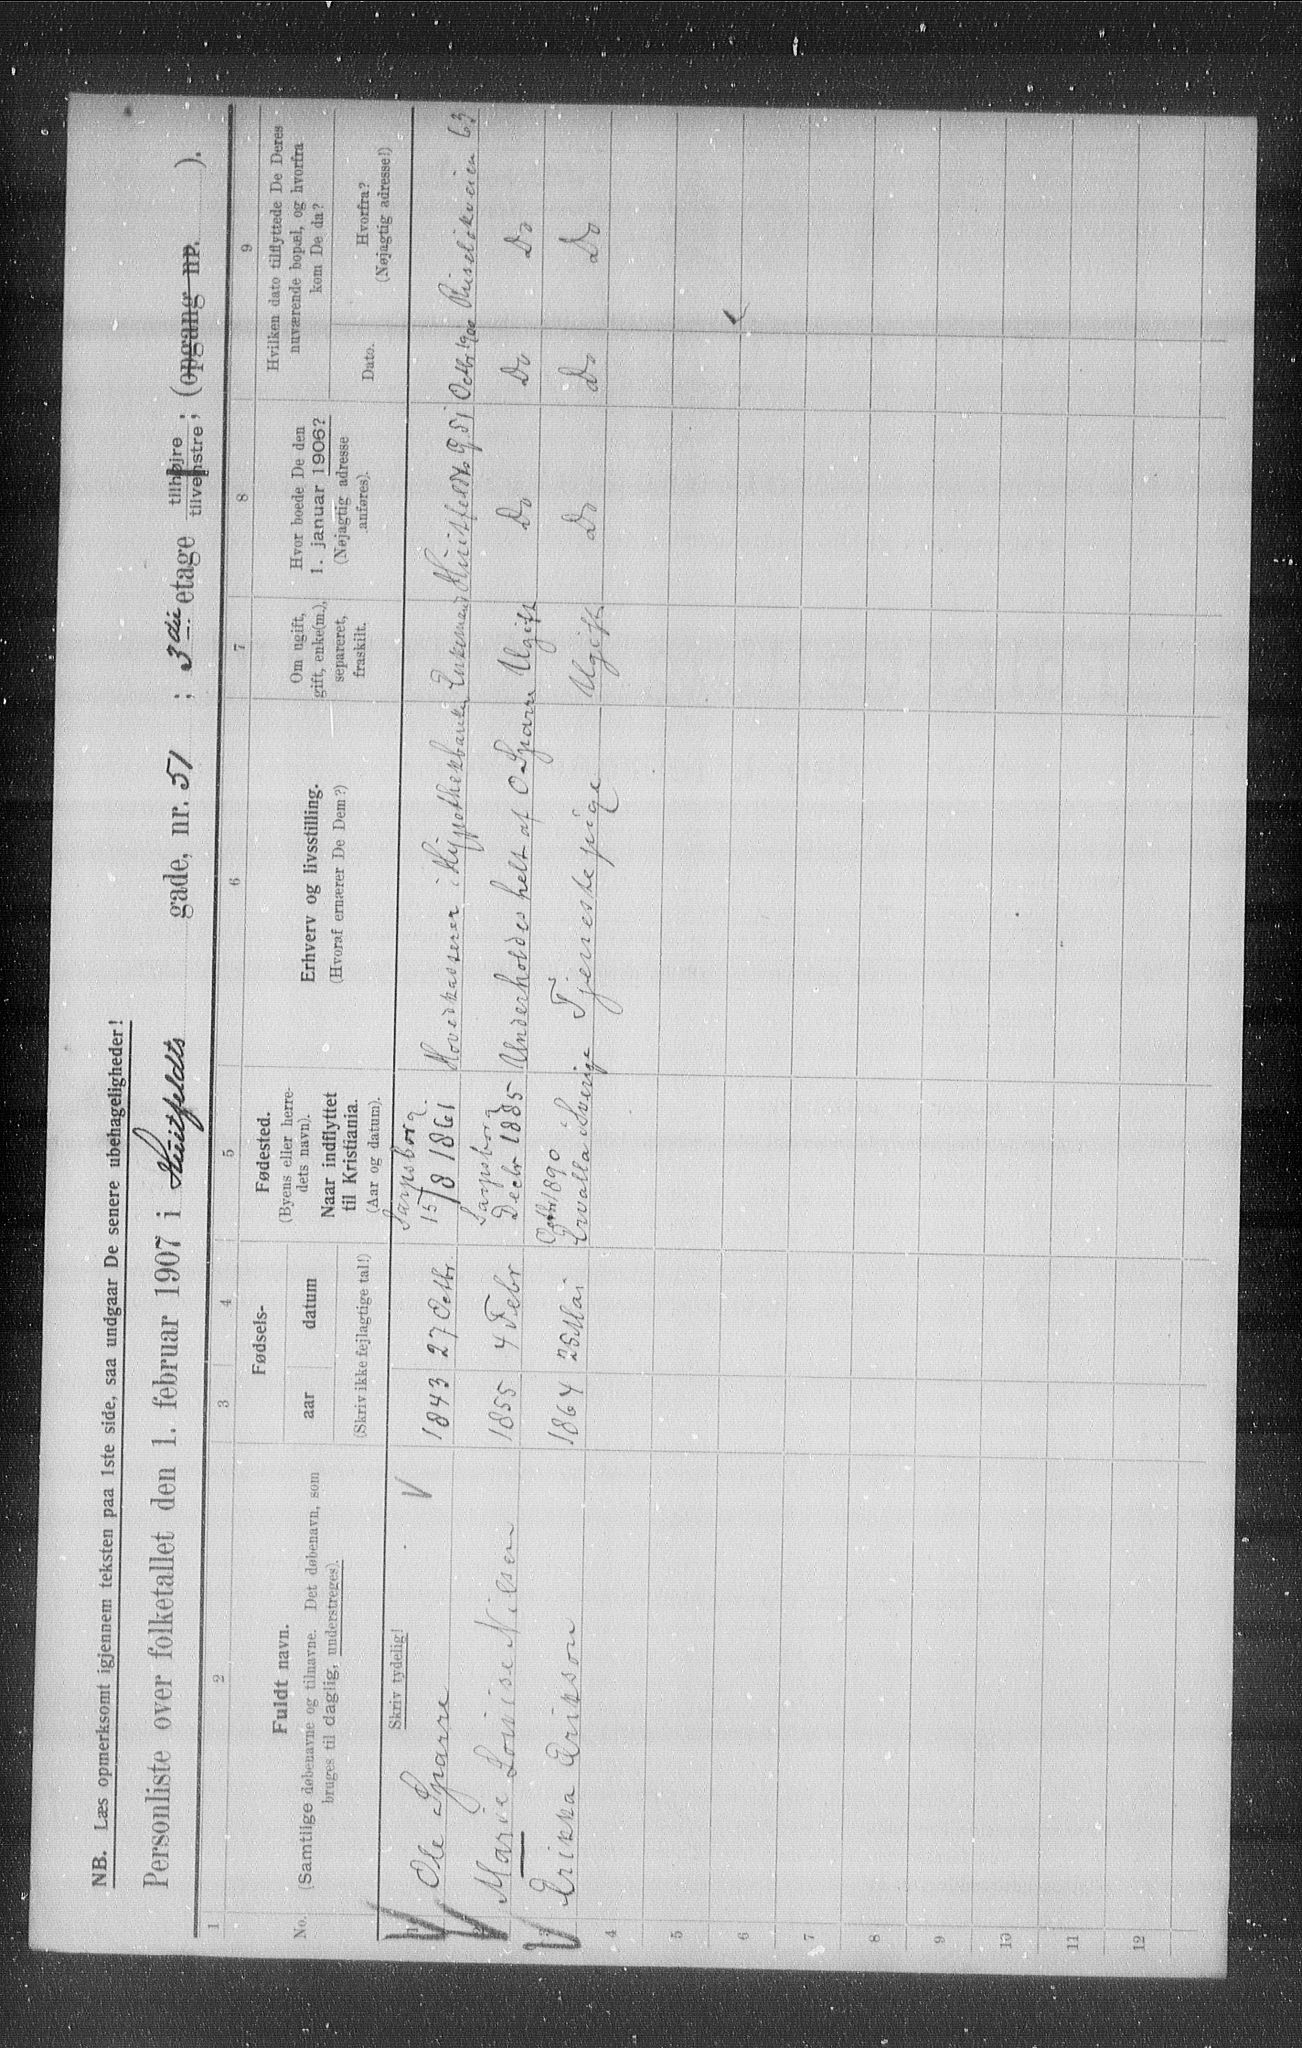 NB. Læs opmerksomt igjennem teksten paa 1ste side, saa undgaar De senere ubehageligheder!
Personliste over folketallet den 1. februar 1907 i Huitfeldts gade, nr. 51 ; 3die etage tilhøjre tilvenstre; (opgang nr. ).
1 2 3 4 5 6 7 8 9
No.
Fuldt navn.
(Samtlige døbenavne og tilnavne. Det døbenavn, som
bruges til daglig, understreges).
Skriv tydelig!
Fødsels-
aar datum
(Skriv ikke fejlagtige tal!)
Fødested.
(Byens eller herre-
dets navn).
Naar indflyttet
til Kristiania.
(Aar og datum).
Erhverv og livsstilling.
(Hvoraf ernærer De Dem?)
Om ugift,
gift, enke(m.),
separeret,
fraskilt.
Hvor boede De den
1. januar 1906?
(Nøjagtig adresse
anføres).
Hvilken dato tilflyttede De Deres
nuværende bopæl, og hvorfra
kom De da?
Dato.
Hvorfra?
(Nøjagtig adresse!)
1 Ole Sparre 1843 27 Octbr Sarpsborg 15/8 1861 Hovedkasserer i Hypothekbanken Enkemand Huitfeldts g 51 Octbr 1900 Ruseløkveien 63
2 Marie Lovise Nilsen 1855 4 Febr Sarpsborg Decbr 1885 Underholdes helt af O Sparre Ugift Do Do Do
3 Erikka Erikson 1864 25 Mai Octbr 1890 Ervalla i Sverige Tjenestepige Ugift Do Do Do
4
5
6
7
8
9
10
11
12